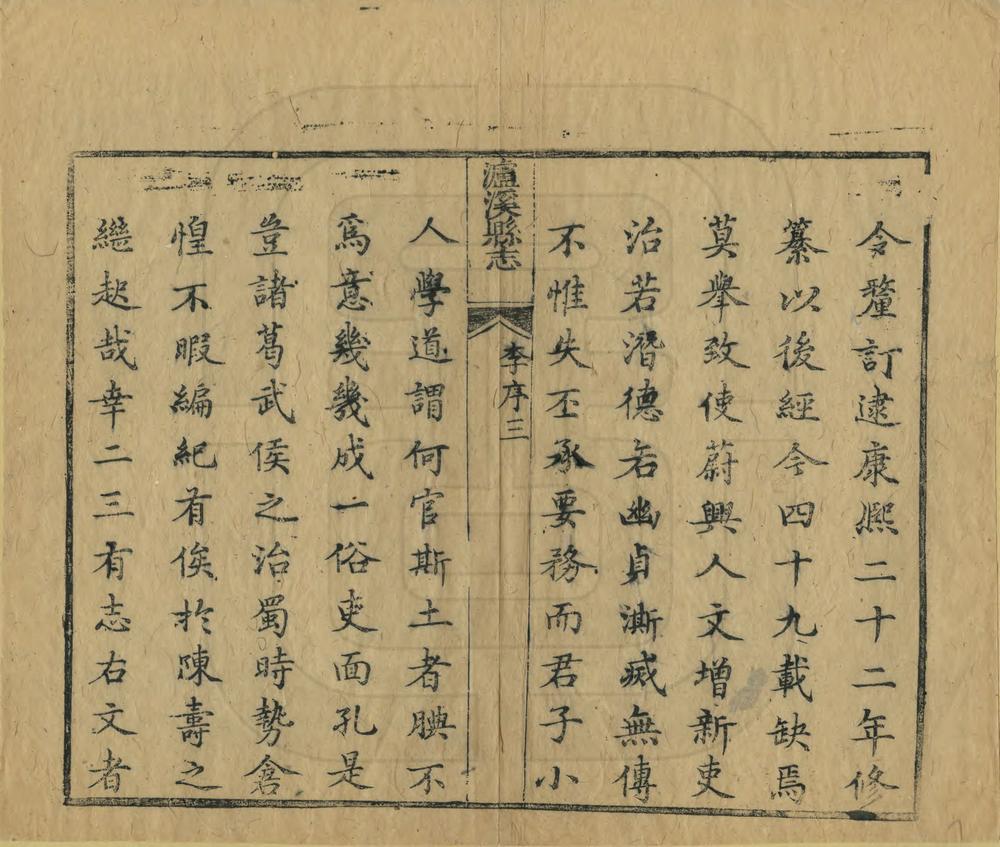 令釐訂逮康熙二十二年修
纂以後經今四十九載缺焉
莫舉致使蔚興人文增新吏
治若潛德若幽貞澌滅無傳
不惟失丕承要務而君子小
瀘溪縣志
李序三
人學道謂何官斯土者腆不
爲意幾幾成一俗吏面孔是
豈諸葛武侯之治蜀時勢倉
惶不暇編紀有俟於陳壽之
繼起哉幸二三有志右文者